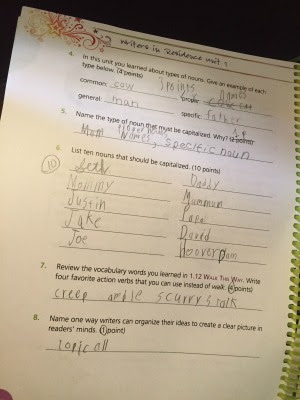 Writers in Residence Unit 1
4. In this unit you learned about types of nouns. Give an example of each type below. (4 points)
3 points
common: cow proper: names
general: man specific: father
5. Name the type of noun that must be capitalized. Why? (2 points)
Names, specific noun
6. List ten nouns that should be capitalized. (10 points)
10
Seth Daddy
Mommy Mammam
Justin Papa
Jake David
Joe Hoover Dam
7. Review the vocabulary words you learned in 1.12 Walk This Way. Write
four favorite action verbs that you can use instead of walk. (4 points)
creep amble scurry stalk
8. Name one way writers can organize their ideas to create a clear picture in
readers' minds. (1 point)
topic all